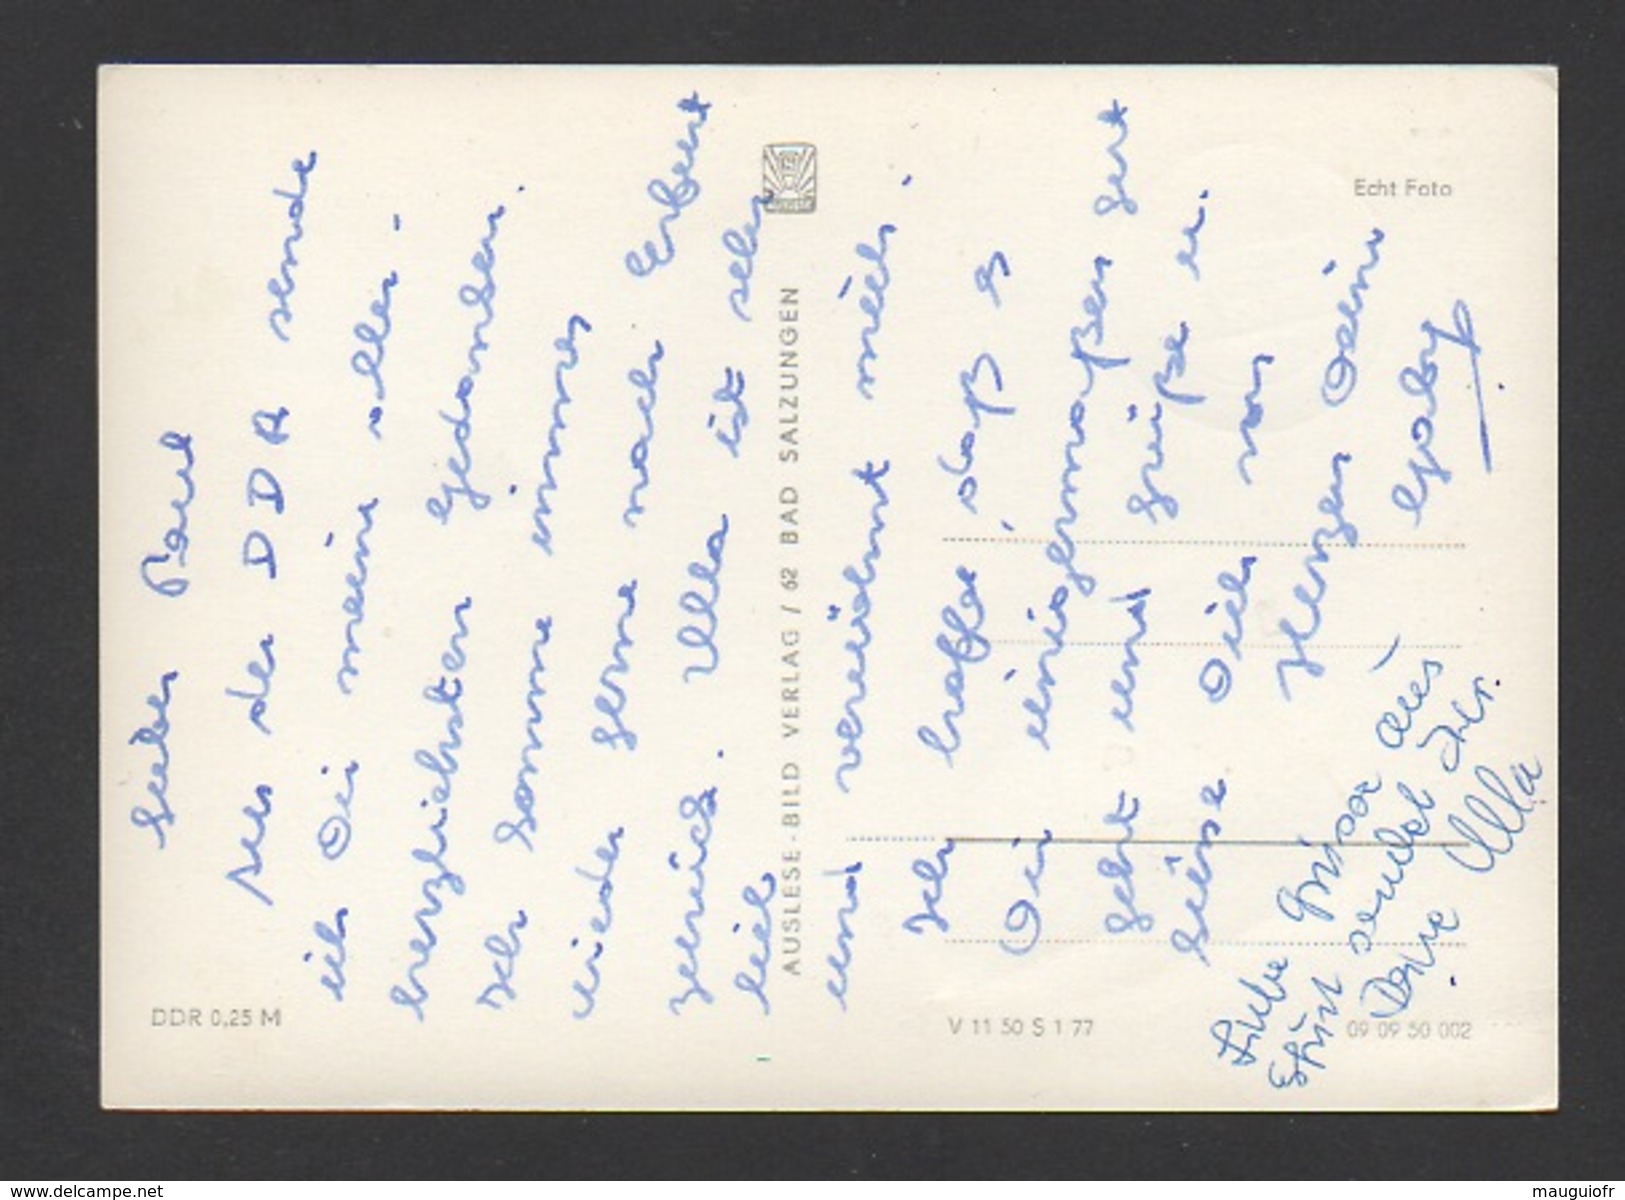 Lieber Paul
Aus der DDR sende
ich Dir meine aller-
herzlichsten Gedanken.
Ich komme immer
wieder gerne nach Erfurt
zurück. Ulla ist sehr
lieb
und verwöhnt mich.
Ich hoffe, daß es
Dir einigermaßen gut
geht und grüße
Dich von
Herzen Deine
Gaby
Liebe Grüsse aus
Erfurt sendet Dir
Deine Ulla
Echt Foto
AUSLESE-BILD VERLAG / 62 BAD SALZUNGEN
DDR 0,25 M
V 11 50 S 1 77
09 09 50 002
www.delcampe.net
mauguiofr